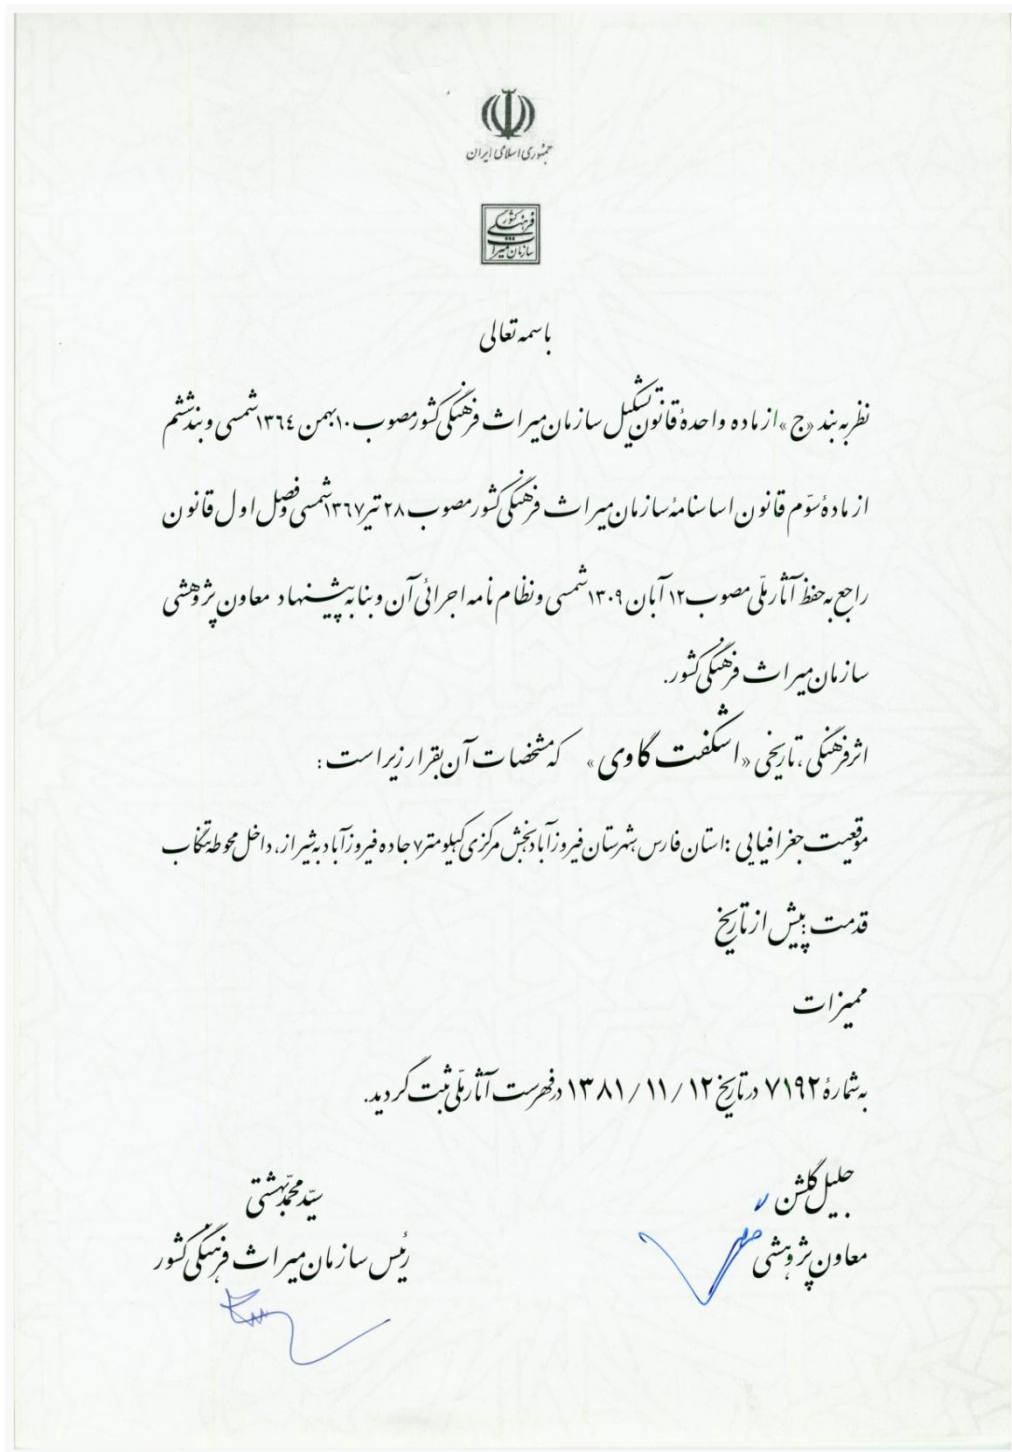 جمهوری اسلامی ایران
سازمان میراث فرهنگی کشور
باسمه تعالی
نظر به بند «ج» از ماده واحدهٔ قانون تشکیل سازمان میراث فرهنگی کشور مصوب ۱۰ بهمن ۱۳۶۴ شمسی و بند ششم
از مادهٔ سوّم قانون اساسنامهٔ سازمان میراث فرهنگی کشور مصوب ۲۸ تیر ۱۳۶۷ شمسی و فصل اول قانون
راجع به حفظ آثار ملّی مصوب ۱۲ آبان ۱۳۰۹ شمسی و نظام نامه اجرائی آن و بنا به پیشنهاد معاون پژوهشی
سازمان میراث فرهنگی کشور.
اثر فرهنگی، تاریخی «اشکفت گاوی» که مشخصات آن بقرار زیر است:
موقعیت جغرافیایی: استان فارس، شهرستان فیروزآباد بخش مرکزی کیلومتر ۷ جاده فیروزآباد به شیراز، داخل محوطه تنگاب
قدمت پیش از تاریخ
ممیزات
به شمارهٔ ۷۱۹۲ در تاریخ ۱۳۸۱/۱۱/۱۲ در فهرست آثار ملّی ثبت گردید.
جلیل گلشن
معاون پژوهشی
سیّد محمّد بهشتی
رئیس سازمان میراث فرهنگی کشور